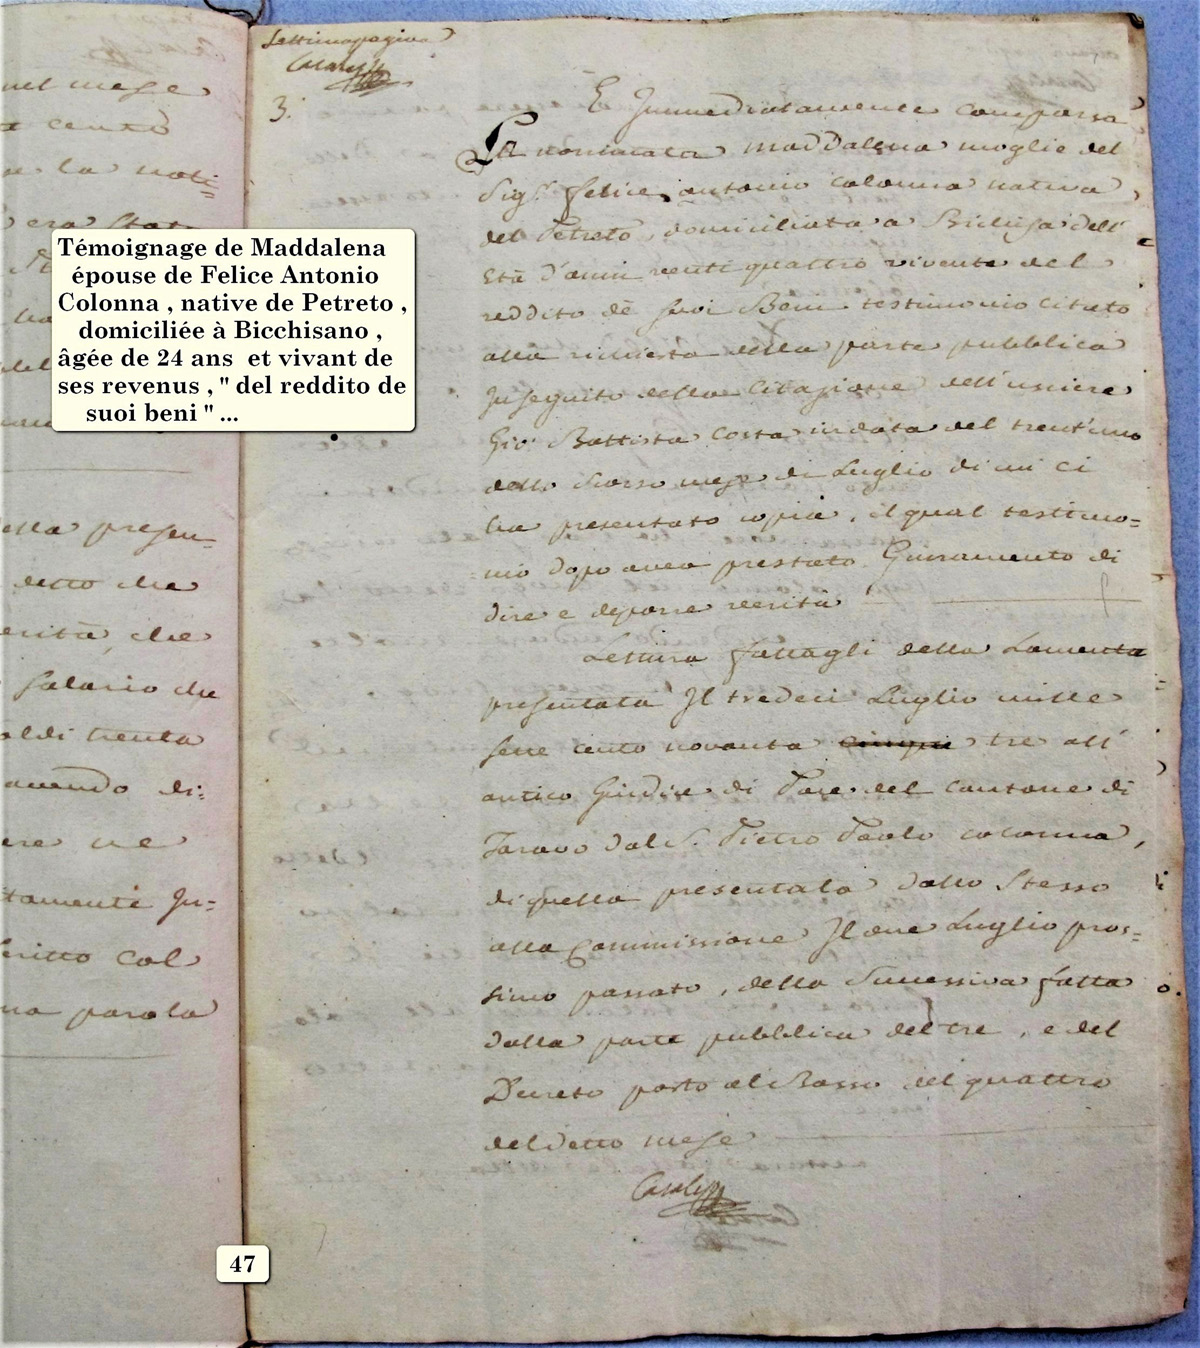 nel mese
cento
la noti=
era stata
ella presen=
detto che
erità, che
salario che
oldi trenta
avendo di=
ere ne
tamente In=
critto col
na parola
Témoignage de Maddalena
épouse de Felice Antonio
Colonna , native de Petreto ,
domiciliée à Bicchisano ,
âgée de 24 ans et vivant de
ses revenus , " del reddito de
suoi beni " ...
47
Settima pagina
3.
E Immediatamente comparsa
La nominata Maddalena moglie del
Sig.r felice antonio colonna nativa
del Petreto, domiciliata a dell'
età d'anni venti quattro vivente del
reddito de suoi Beni testimonio citato
alla richiesta della parte pubblica
In seguito della Citazione dell'usciere
Gio: Battista Costa in data del trent'uno
dello scorso mese di Luglio di cui ci
ha presentato copia, il qual testimo=
=nio dopo aver prestato Giuramento di
dire e deporre verità
Lettura fattagli della Lamenta
presentata Il tredeci Luglio mille
sette cento novanta cinque tre all'
antico Giudice di Pace del cantone di
Taravo dal S. Pietro Paolo colonna,
di quella presentata dallo Stesso
alla Commissione Il due Luglio pros=
simo passato, della Successiva fatta
dalla parte pubblica del tre, e del
Decreto posto al Basso del quattro
del detto mese